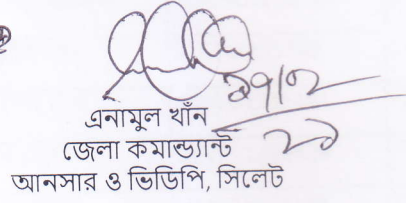 ২৭/০২
২১
এনামুল খাঁন
জেলা কমান্ড্যান্ট
আনসার ও ভিডিপি, সিলেট